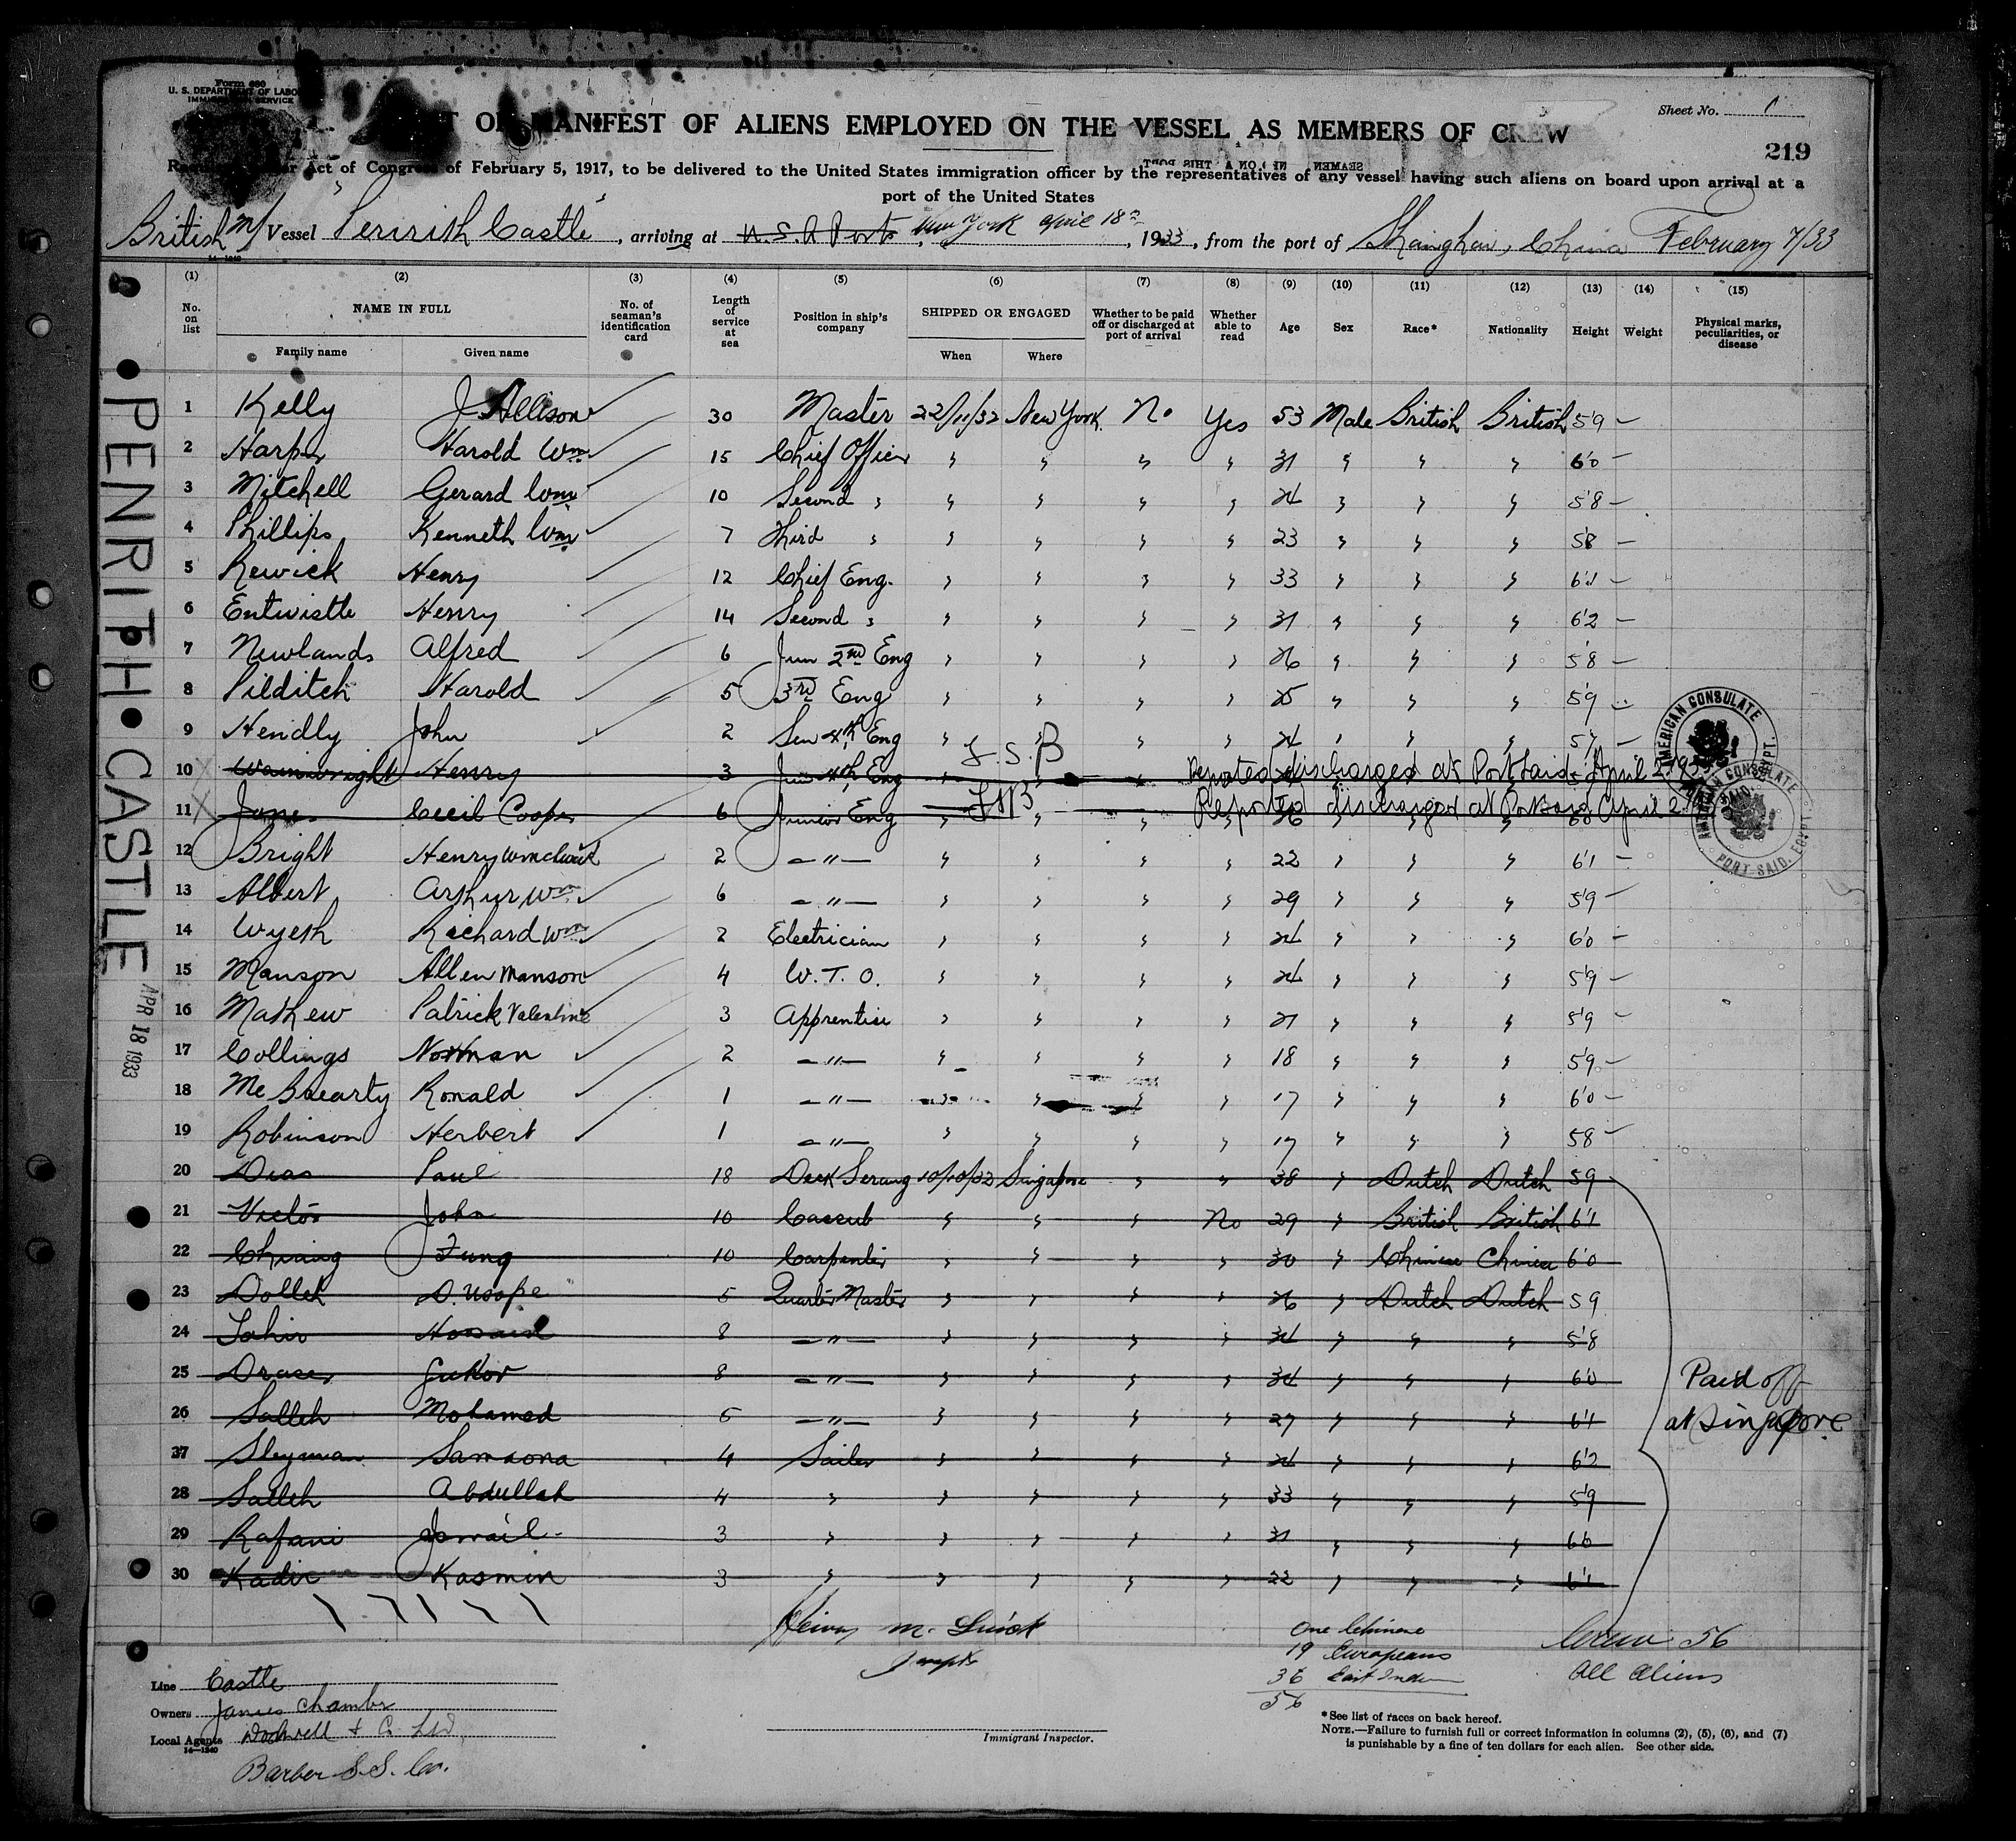 Form 680
U. S. DEPARTMENT OF LABOR
IMMIGRATION SERVICE
Sheet No. 1
OR MANIFEST OF ALIENS EMPLOYED ON THE VESSEL AS MEMBERS OF CREW
219
Act of Congress of February 5, 1917, to be delivered to the United States immigration officer by the representatives of any vessel having such aliens on board upon arrival at a
port of the United States
British M/ Vessel "Penrith Castle", arriving at U.S.A Ports, New York April 18th, 1933, from the port of Shanghai, China February 7/33
14—1240
(1) (2) (3) (4) (5) (6) (7) (8) (9) (10) (11) (12) (13) (14) (15)
No. on list NAME IN FULL No. of seaman's identification card Length of service at sea Position in ship's company SHIPPED OR ENGAGED Whether to be paid off or discharged at port of arrival Whether able to read Age Sex Race* Nationality Height Weight Physical marks, peculiarities, or disease
Family name Given name When Where
1 Kelly J. Allison 30 Master 22/11/32 New York. No Yes 53 Male British British 5'9 —
2 Harper Harold Wm 15 Chief Officer " " " " 31 " " " 6'0 —
3 Mitchell Gerard Wm 10 Second " " " " " 24 " " " 5'8 —
4 Phillips Kenneth Wm 7 Third " " " " " 23 " " " 5'8 —
5 Rewick Henry 12 Chief Eng. " " " " 33 " " " 6'1 —
6 Entwistle Henry 14 Second " " " " " 31 " " " 6'2 —
7 Newlands Alfred 6 Jun 2nd Eng " " " " 26 " " " 5'8 —
8 Pilditch Harold 5 3rd Eng " " " " 25 " " " 5'9
9 Hendly John 2 Sen 4th Eng " " " " 24 " " " 5'7 —
10 Wainwright Henry 3 Jun 4th Eng Reported discharged at Port Said April 2
11 Jones Cecil Cooper 6 Junior Eng Reported discharged at Port Said April 2
12 Bright Henry 2 — " — " " " " 22 " " " 6'1 —
13 Albert Arthur Wm 6 — " — " " " " 29 " " " 5'9 —
14 Wyeth Richard Wm 2 Electrician " " " " 24 " " " 6'0 —
15 Manson Allen Manson 4 W. T. O. " " " " 24 " " " 5'9 —
16 Mathew Patrick Valentine 3 Apprentice " " " " 21 " " " 5'9 —
17 Collings Norman 2 — " — " " " " 18 " " " 5'9 —
18 Mc Brearty Ronald 1 — " — " " " " 17 " " " 6'0 —
19 Robinson Herbert 1 — " — " " " " 17 " " " 5'8 —
20 Dias Paul 18 Deck Serang 10/10/32 Singapore " " 38 " Dutch Dutch 5'9
21 Victor John 10 Cassub " " " No 29 " British British 6'1
22 Chiang Fung 10 Carpenter " " " " 30 " Chinese Chinese 6'0
23 Dolleh D. Usope 5 Quarter Master " " " " 26 " Dutch Dutch 5'9
24 Tahir 8 — " — " " " " 34 " " " 5'8
25 8 — " — " " " " 34 " " " 6'0
26 Salleh Mohamed 5 — " — " " " " 27 " " " 6'1
27 Sleyman Samsona 4 Sailor " " " " 24 " " " 6'2
28 Salleh Abdullah 4 " " " " " 33 " " " 5'9
29 Rafani Ismail 3 " " " " " 31 " " " 6'0
30 Kadir Kasmin 3 " " " " " 22 " " " 6'1
Paid off
at Singapore
PENRITH • CASTLE
APR 18 1933
AMERICAN CONSULATE
AMERICAN CONSULATE
PORT SAID, EGYPT.
One Chinese
19 Europeans
36 East Indian
56
Crew 56
All Aliens
Line Castle
Owners James Chambers
Local Agents Dodwell & Co Ltd
14—1240
Barber S.S. Co.
Immigrant Inspector.
*See list of races on back hereof.
NOTE.—Failure to furnish full or correct information in columns (2), (5), (6), and (7)
is punishable by a fine of ten dollars for each alien. See other side.